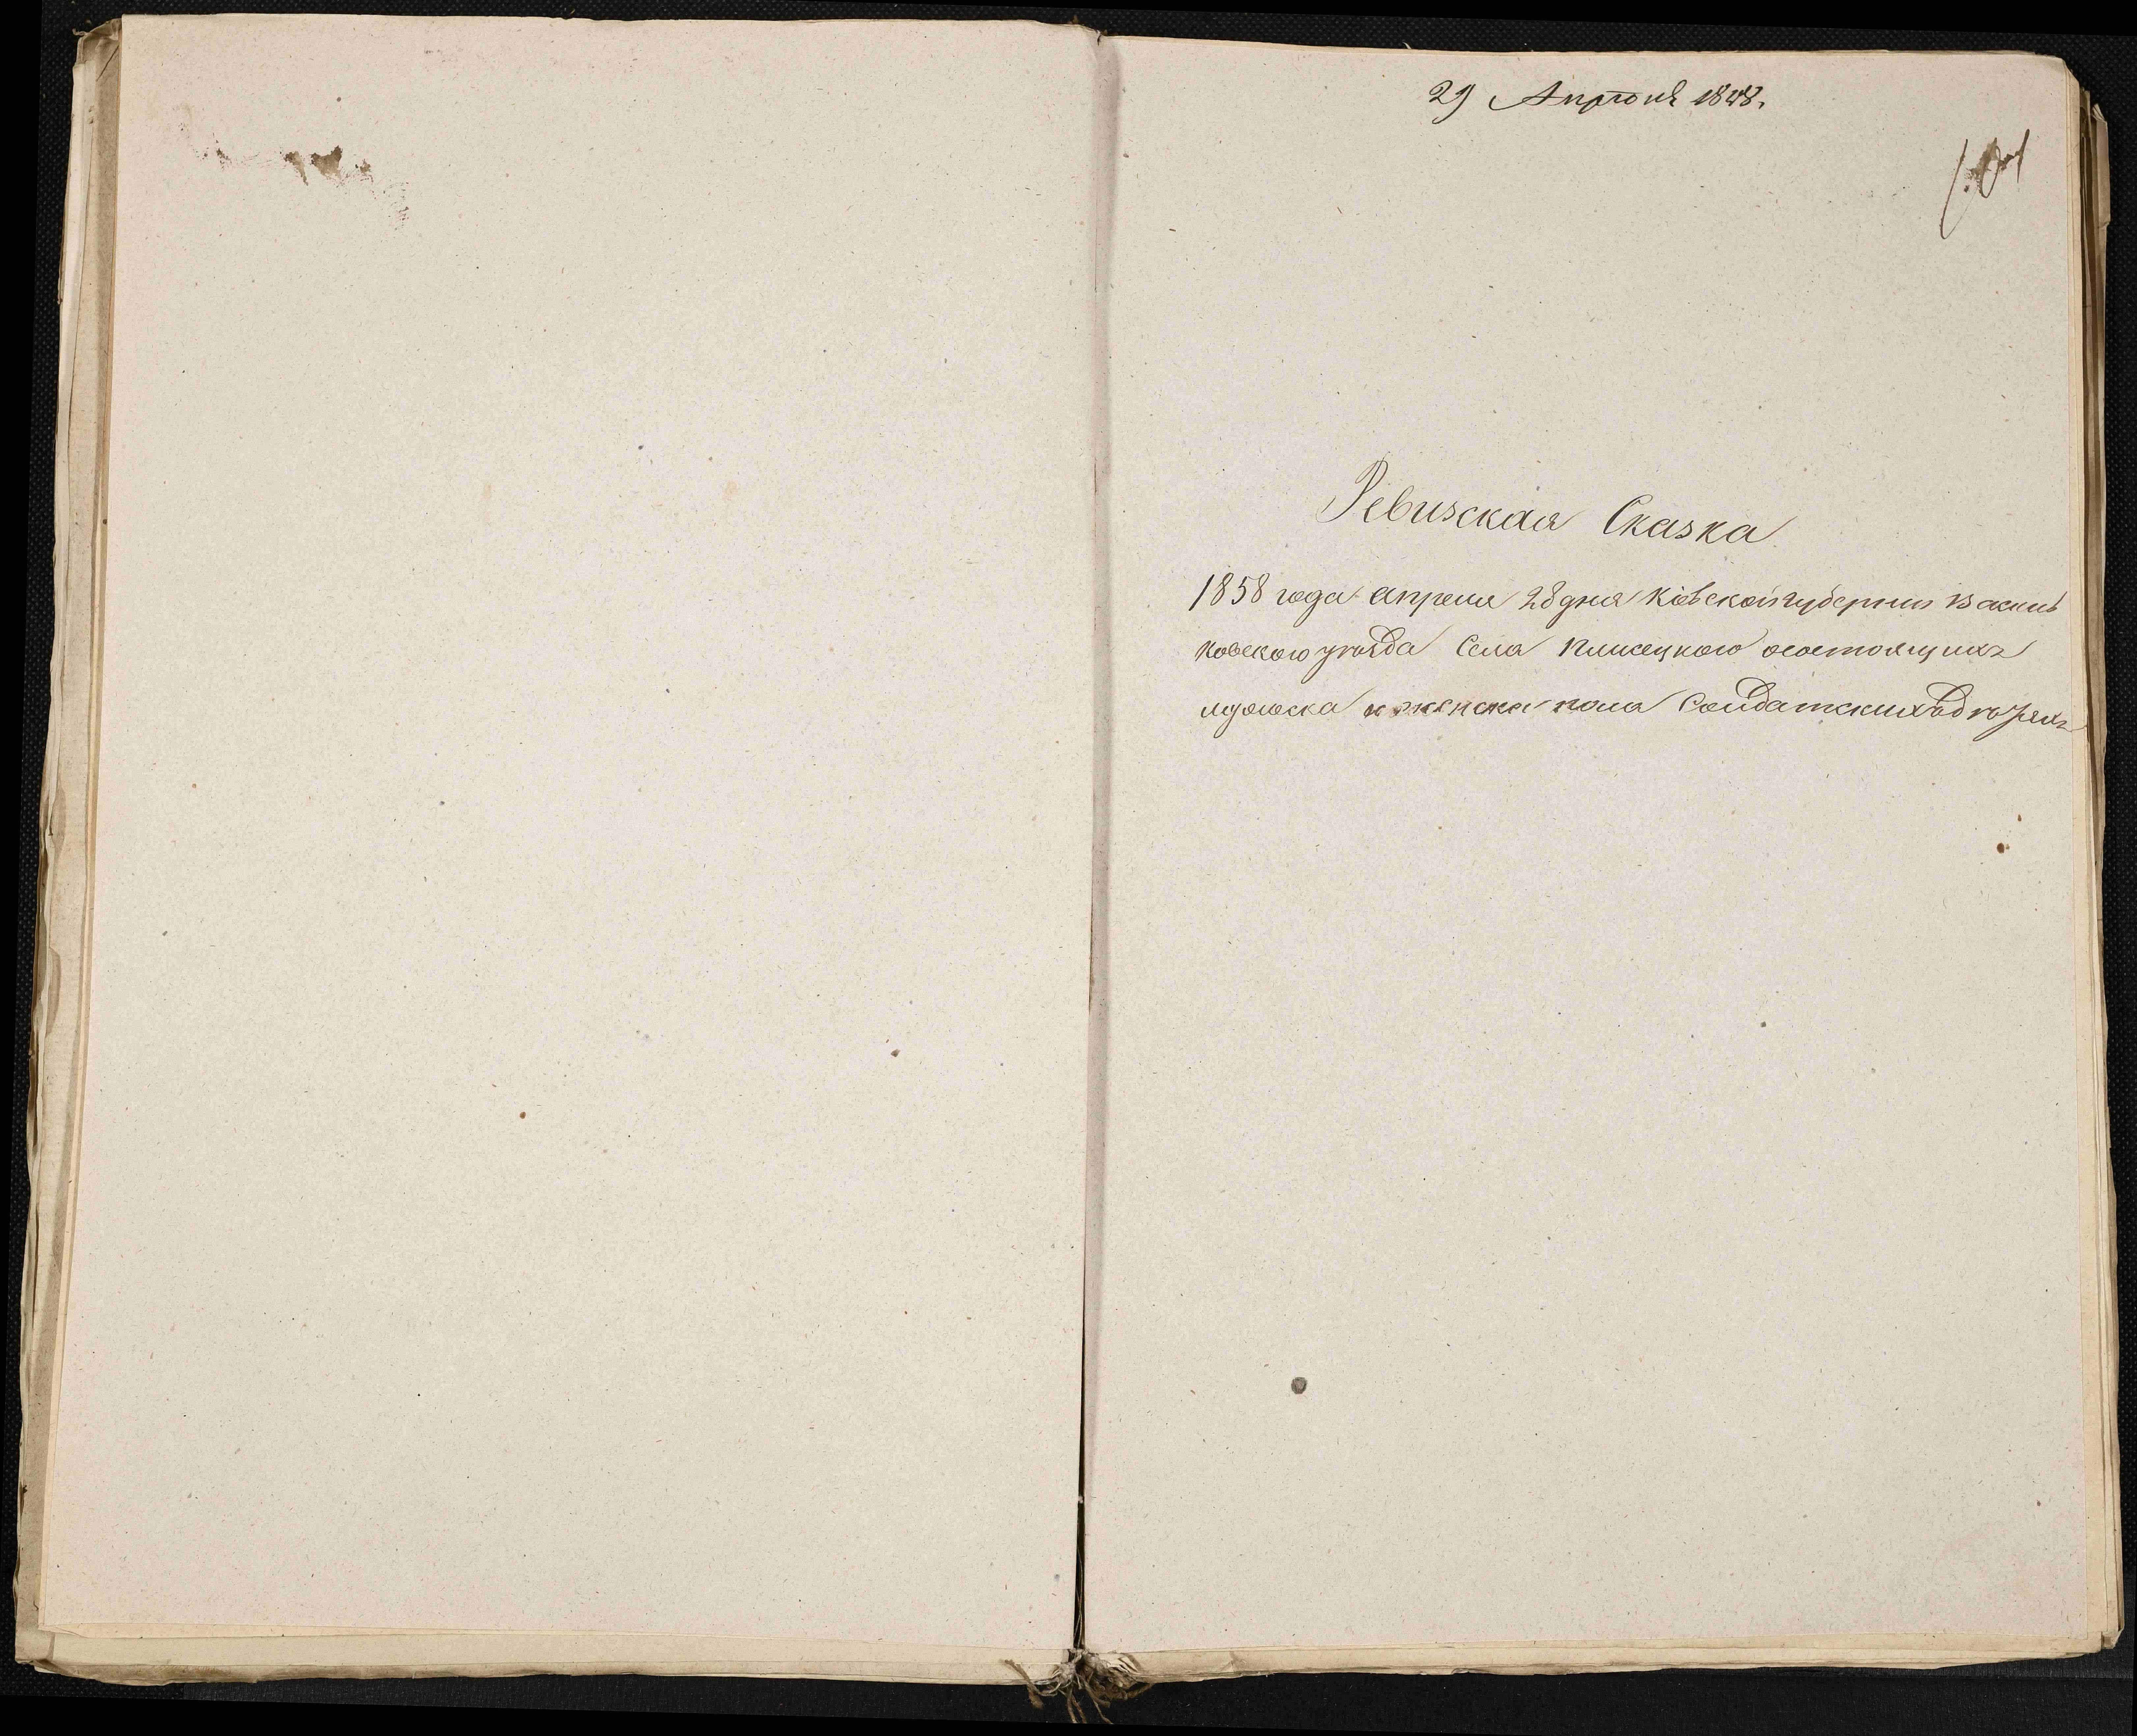 29 Апрѣля 1858.
Ревизская Сказка
1858 года апреля 28 дня Кіевской губернии Василь
ковского уѣзда Села Плисецкого осостоящихъ
мужеска и женска пола Солдатских